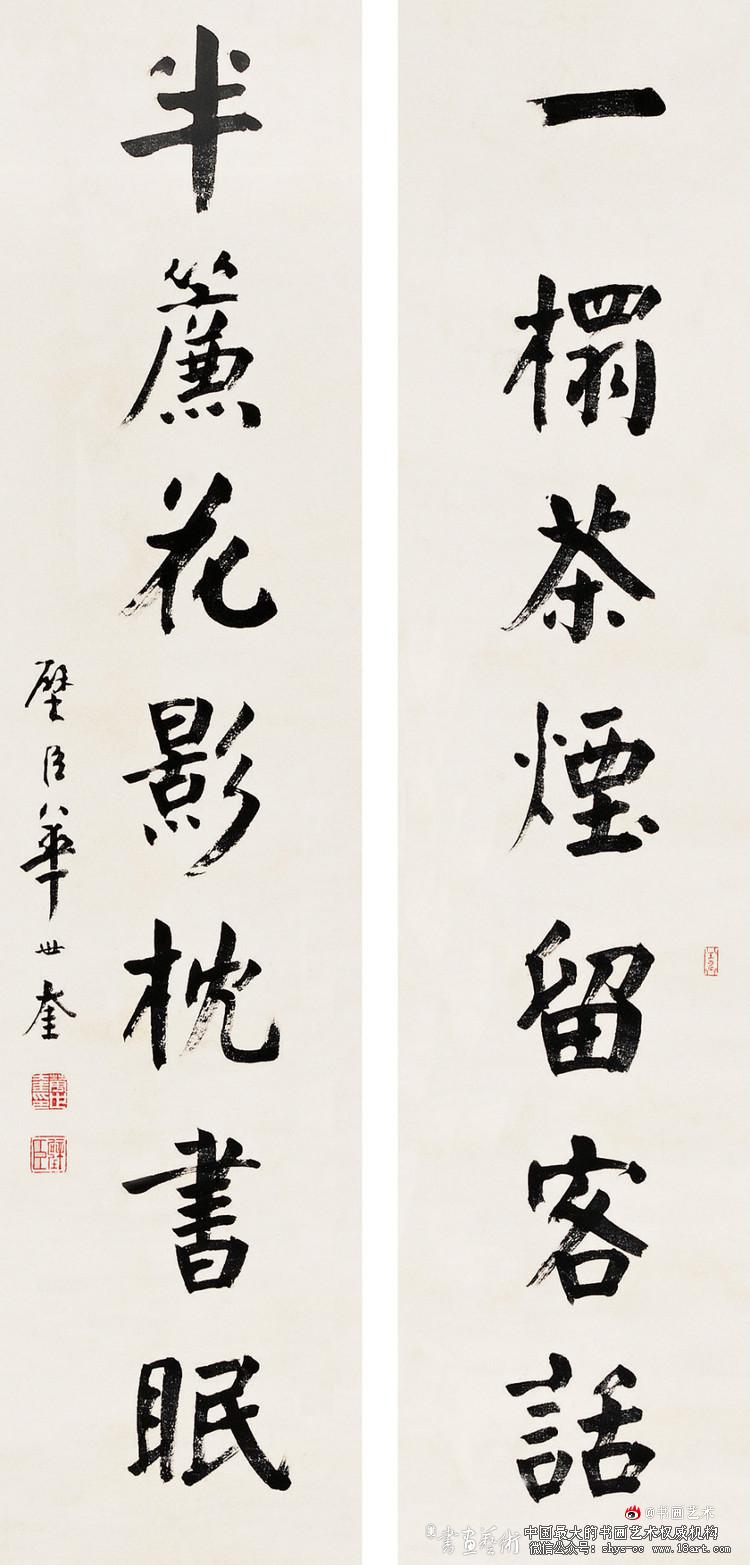 一榻茶煙留客話
半簾花影枕書眠
璧臣華世奎
@书画艺术
書畫藝術
中国最大的书画艺术权威机构
微信公众号：shys-cc www.18art.com